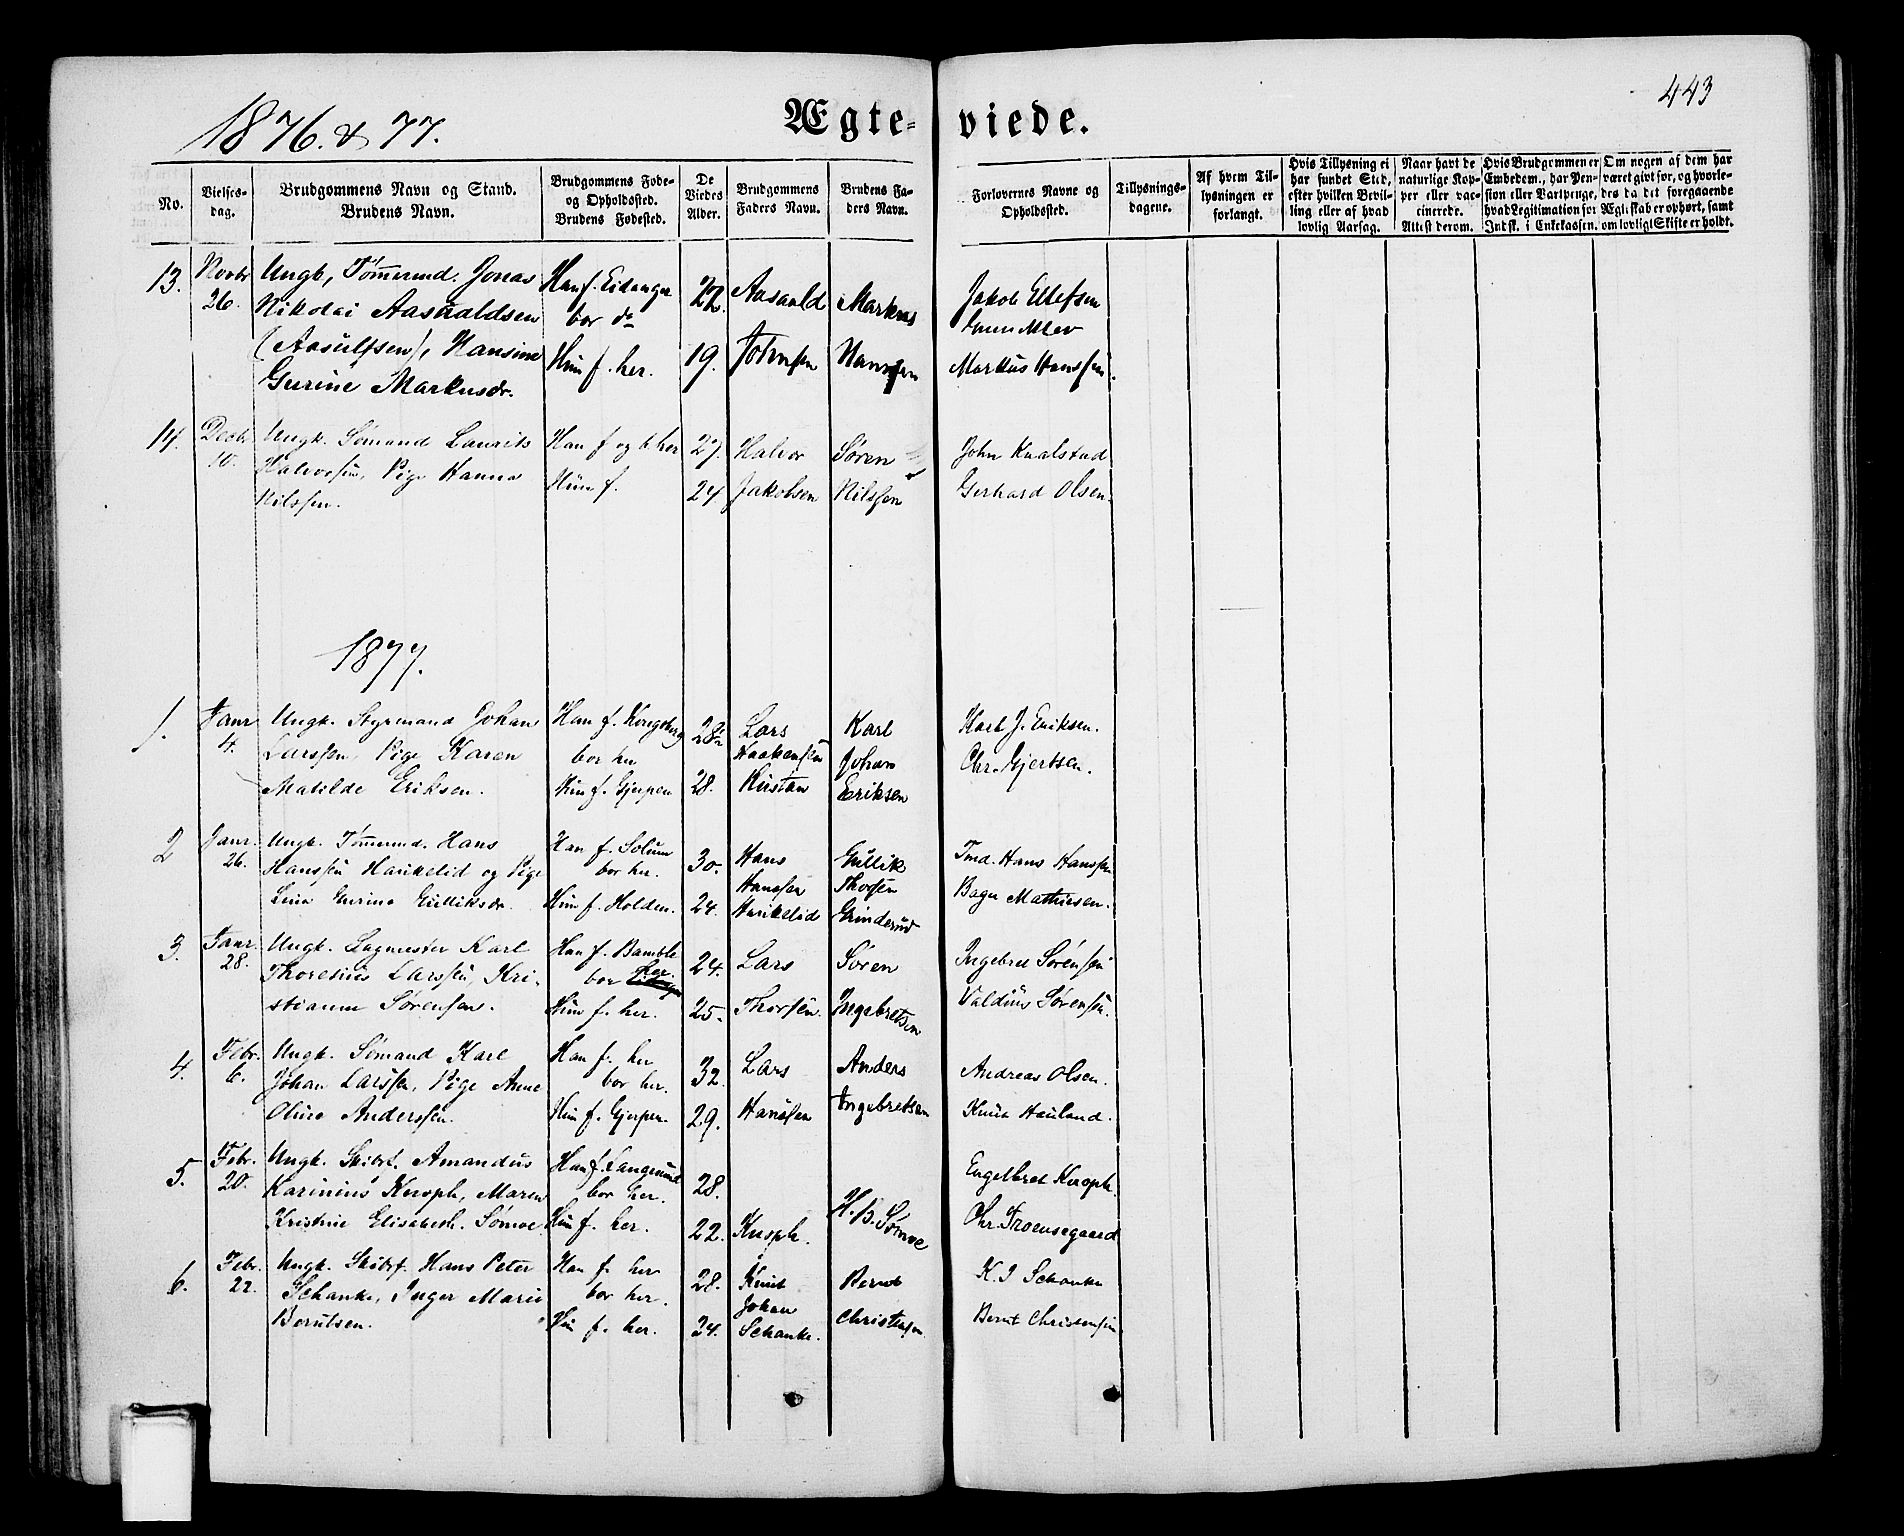 1876. & 77.
Ægteviede.
443
No.
Vielses-
dag.
Brudgommens Navn og Stand.
Brudens Navn.
Brudgommens Føde-
og Opholdsted.
Brudens Fødested.
De
Viedes
Alder.
Brudgommens
Faders Navn.
Brudens Fa-
ders Navn.
Forlovernes Navne og
Opholdsted.
Tillysnings-
dagene.
Af hvem Til-
lysningen er
forlangt.
Hvis Tillysning ei
har fundet Sted,
efter hvilken Bevil-
ling eller af hvad
lovlig Aarsag.
Naar havt de
naturlige Kop-
per eller vac-
cinerede.
Attest derom.
Hvis Brudgommen er
Embedsm., har Pen-
sion eller Vartpenge,
hvad Legitimation for
Indsk. i Enkekassen.
Om nogen af dem har
været gift før, og hvorle-
des da det foregaaende
Ægteskab er ophørt, samt
om lovligt Skifte er holdt.
13. Novbr 26. Ungk. Tømmermd. Jonas
Nikolai Aasvaldsen
(Aasulfsen), Hansine
Gurine Markusdr.
Han f. Eidanger
bor do
Hun f. her.
22.
19.
Aasvald
Johnsen
Markus
Hanssen
Jakob Ellefsen
Markus Hanssen.
14. Decbr 10. Ungk. Sømand Laurits
Halvorsen, Pige Hanna
Nilssen.
Han f og b. her
Hun f.
27.
24
Halvor
Jakobsen
Søren
Nilssen
John Knalstad
Gerhard Olsen.
1877.
1. Janr 4. Ungk. Styrmand Johan
Larssen, Pige Karen
Matilde Eriksen.
Han f. Kongsberg
bor her
Hun f. Gjerpen
28½
28.
Lars
Haakensen
Hustan
Karl
Johan
Eriksen
Karl J. Eriksen.
Chr. Gjertsen.
2 Janr. 26. Ungk. Tømmermd. Hans
Hanssen Haukelid og Pige
Lina Gurine Gulliksdr.
Han f. Solum
bor her.
Hun f. Holden.
30.
24.
Hans
Hanssen
Haukelid
Gullik
Thorsen
Grinderud
Tmd. Hans Hanssen
Bager Mathiesen.
3. Janr. 28. Ungk. Lagmester Karl
Thoresius Larssen, Kri-
stianne Sørensen.
Han f. Bamble
bor her.
Hun f. her.
24.
25.
Lars
Thorsen.
Søren
Ingebretsen
Ingebret Sørensen
Valdius Sørensen.
4. Febr. 6. Ungk. Sømand Karl
Johan Larssen, Pige Anne
Oline Anderssen.
Han f. her
bor her.
Hun f. Gjerpen.
32.
29.
Lars
Hanssen
Anders
Ingebretsen
Andreas Olsen.
Knut Hauland.
5. Febr. 20. Ungk. Skibsf. Amandus
Karinius Knoph, Maren
Kristine Elisabeth Sømoe
Han f. Langesund
bor her.
Hun f. her.
28.
22.
Knoph.
H. B. Sømoe
Engelbret Knoph.
Chr. Froensegaard
6. Febr. 22. Ungk. Skibsf. Hans Peter
Schanke, Inger Marie
Berntsen.
Han f. her
bor her.
Hun f. her.
28.
24.
Knut
Johan
Schanke.
Bernt
Christensen
K. J Schanke
Bernt Christensen